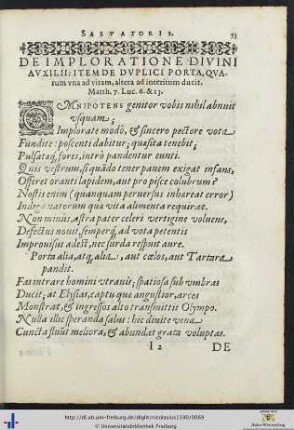 SALVATORIS. 53
DE IMPLORATIONE DIVINI
AVXILII: ITEM DE DVPLICI PORTA, QVA-
rum vna ad vitam, altera ad interitum ducit.
Matth. 7. Luc. 6. & 13.
OMNIPOTENS genitor vobis nihil abnuit
vsquam;
Implorate modò, & sincero pectore vota
Fundite: poscenti dabitur; quæsita tenebit;
Pulsatæq́; fores, intrò pandentur eunti.
Quis vestrûm, si quādo tener panem exigat infans,
Offeret oranti lapidem, aut pro pisce colubrum?
Nostis enim (quanquam peruersus inhæreat error)
Indegò natorum quæ vita alimenta requirat.
Non minùs, astra pater celeri vertigine voluens,
Defectus nouit, semperq́; ad vota petentis
Improuisus adest, nec surda respuit aure.
Porta alia, atq́; alia, aut cœlos, aut Tartara
pandit.
Fas intrare homini vtrauis; spatiosa sub vmbras
Ducit; at Elysias, captu quæ angustior, arces
Monstrat, & ingressos alto transmittit Olympo.
Nulla illic speranda salus: hic diuite vena
Cuncta fluūt meliora, & abundat grata voluptas.
I 2 DE
http://dl.ub.uni-freiburg.de/diglit/nicolasius1590/0069
© Universitätsbibliothek Freiburg